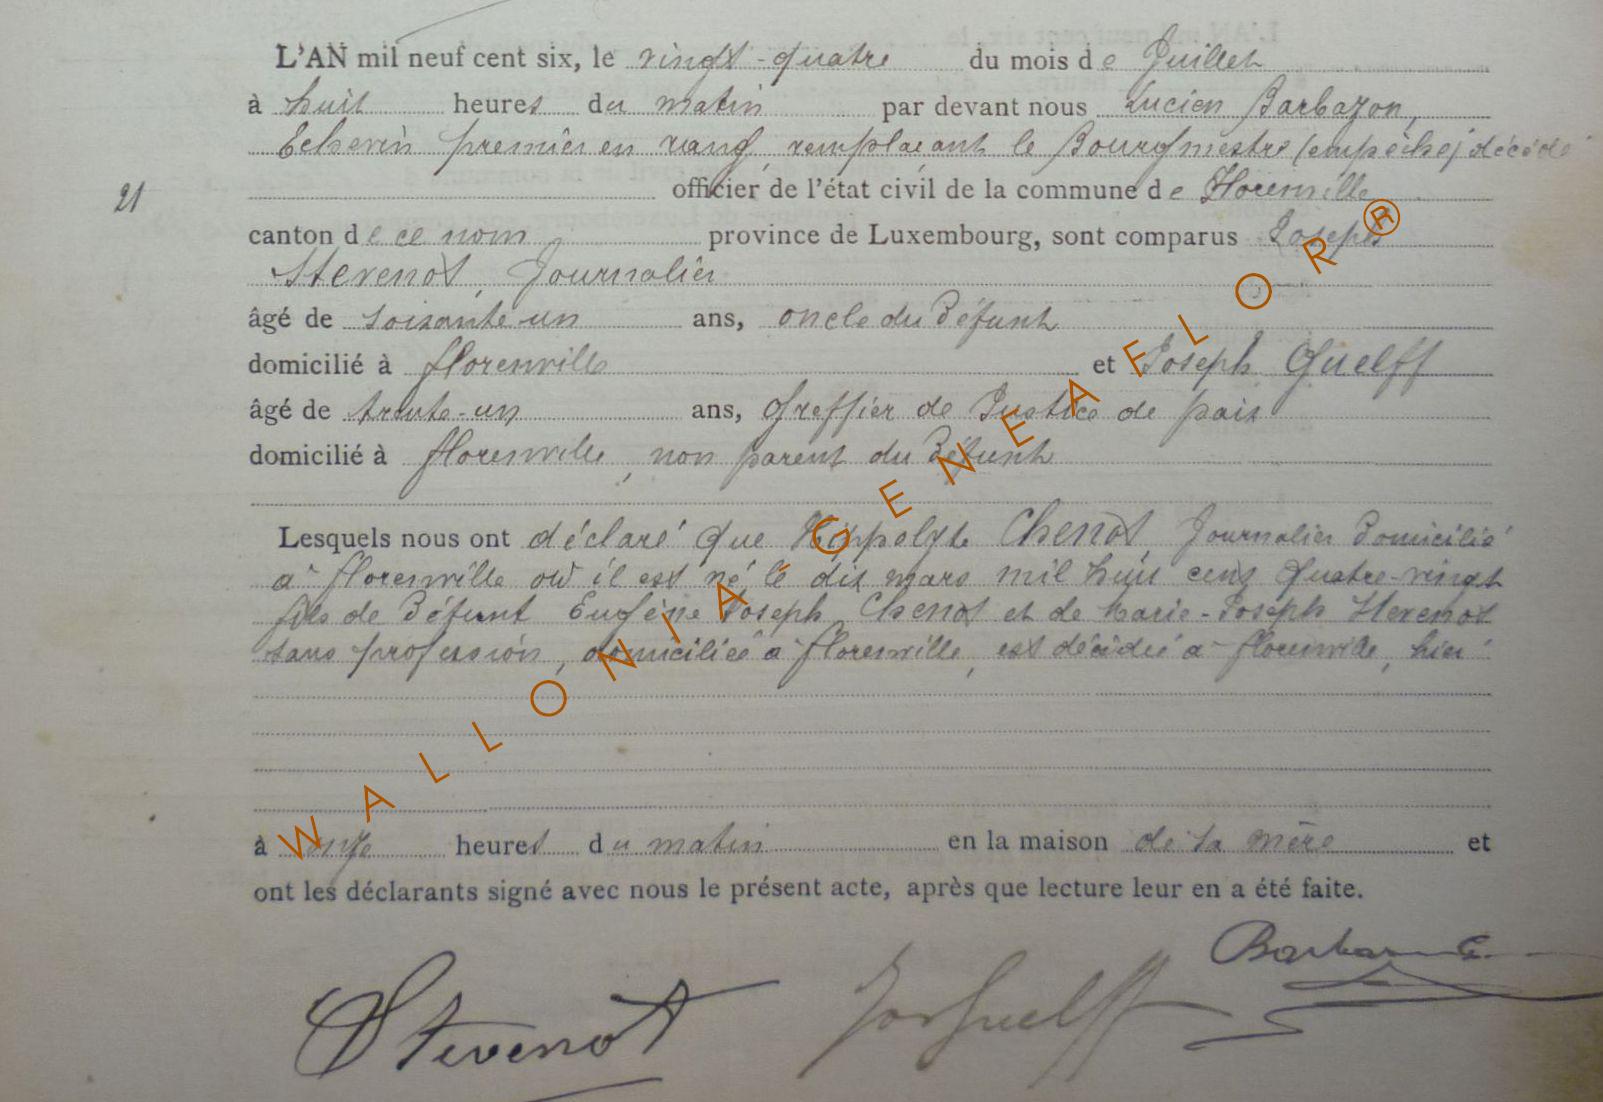 L'AN mil neuf cent six, le vingt-quatre du mois de Juillet
à huit heures du matin par devant nous Lucien Barbazon,
Echevin premier en rang, remplaçant le Bourgmestre (empêché) décédé
21 officier de l'état civil de la commune de Florenville
canton de ce nom province de Luxembourg, sont comparus Joseph
Stevenot, Journalier
âgé de soixante-un ans, oncle du Défunt
domicilié à florenville et Joseph Guelff
âgé de trente-un ans, Greffier de Justice de paix
domicilié à florenville, non parent du Défunt
Lesquels nous ont déclaré que Hippolyte Chenot, Journalier Domicilié
à florenville où il est né, le dix mars mil huit cent quatre-vingt
fils de Défunt Eugène Joseph Chenot et de Marie-Joseph Stevenot
sans profession, domiciliée à florenville, est décédé à florenville, hier
à onze heures du matin en la maison de sa mère et
ont les déclarants signé avec nous le présent acte, après que lecture leur en a été faite.
Stevenot Jos Guelff Barbazon
WALLONIA-GENEAFLOR®